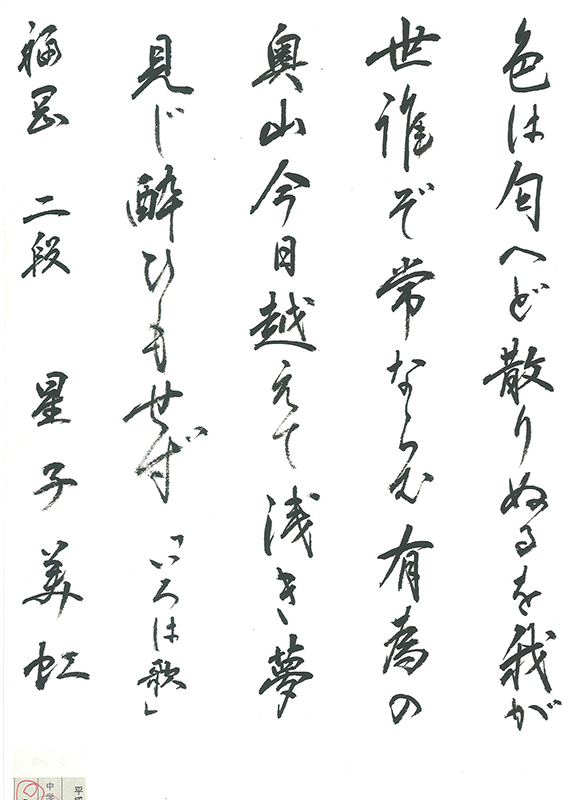 色は匂へど散りぬるを我が
世誰ぞ常ならむ有為の
奥山今日越えて浅き夢
見じ酔ひもせず「いろは歌」
福岡 二段 星子美虹
中学